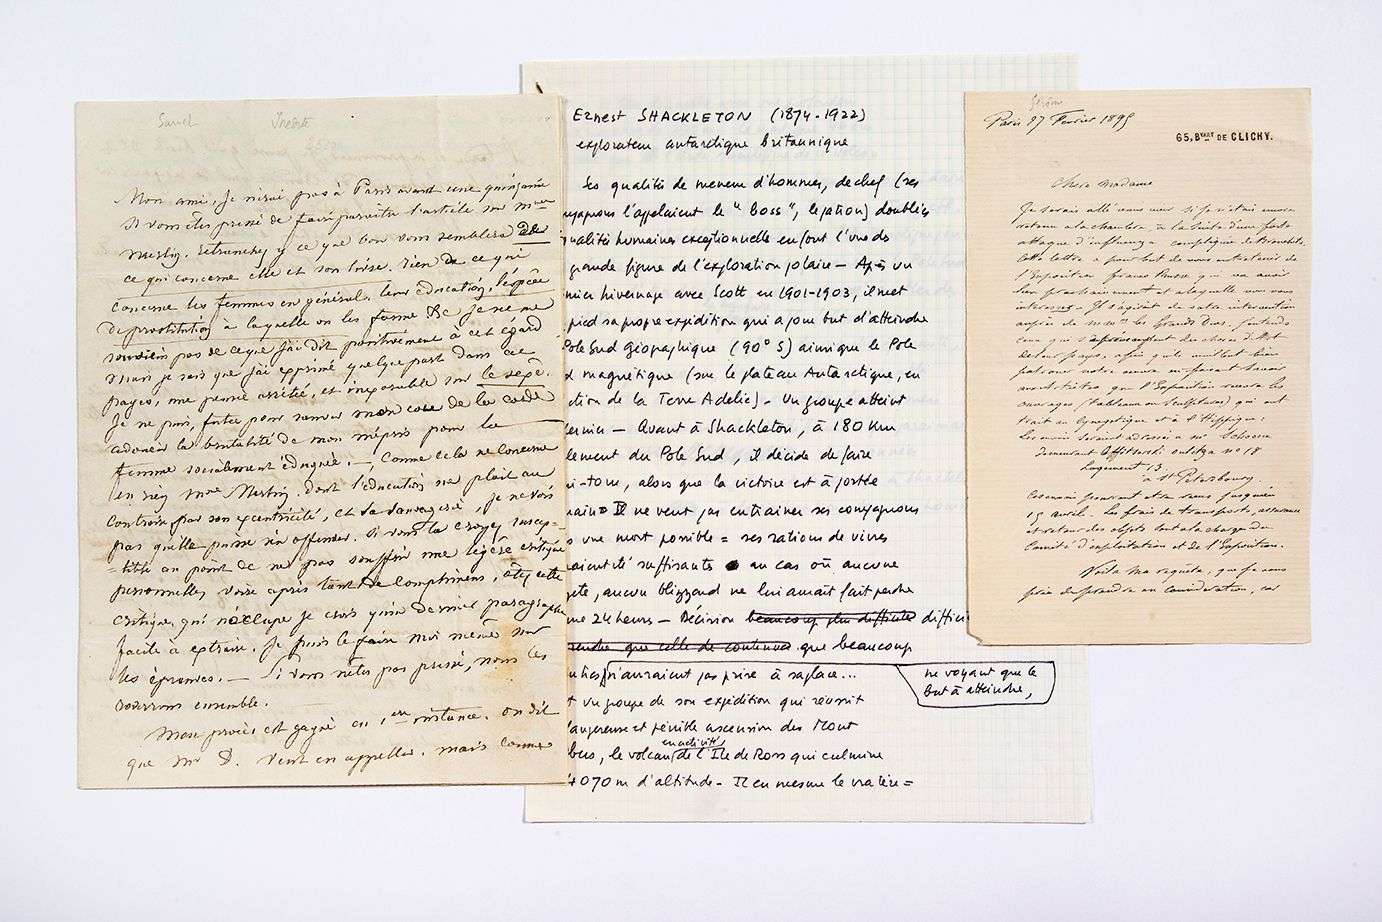 Inédit
Mon ami, Je n'irai pas à Paris avant une quinzaine
Si vous êtes pressé de faire paraître l'article sur Mme
Merlin. retranchez y ce que bon vous semblera de
ce qui concerne elle et son livre. rien de ce qui
concerne les femmes en général. leur éducation, l'espèce
de prostitution à laquelle on les forme &c Je ne me
souviens pas de ce que j'ai dit positivement à cet égard
mais je sais que j'ai exprimé quelque part dans ces
pages, une pensée arrêtée, et inexorable sur le sexe.
Je ne puis, fut ce pour sauver mon cou de la corde
adoucir la brutalité de mon mépris pour la
femme socialement éduquée. —, Comme cela ne concerne
en rien Mme Merlin. dont l'éducation me plait au
contraire par son excentricité, et sa sauvagerie, je ne vois
pas qu'elle puisse s'en offenser. Si vous la croyez suscep-
-tible au point de ne pas souffrir une légère critique
personnelle, voire après tant de complimens, ôtez cette
critique, qui n'occupe je crois qu'un dernier paragraphe
facile à extraire. Je puis le faire moi même sur
les épreuves. — Si vous n'êtes pas pressé, nous les
reverrons ensemble.
Mon procès est gagné en 1ere instance. on dit
que Mr D. veut en appeller. mais comme
Ernest SHACKLETON (1874-1922)
explorateur antarctique britannique
Ses qualités de meneur d'hommes, de chef (ses
l'appelaient le "boss", le patron) doublées
qualités humaines exceptionnelles en font l'une des
grande figure de l'exploration polaire — Après un
hivernage avec Scott en 1901-1903, il met
pied sa propre expédition qui a pour but d'atteindre
Pôle Sud Géographique (90° S) ainsi que le Pole
magnétique (sur le plateau Antarctique, en
de la Terre Adélie) - Un groupe atteint
dernier — Quant à Shackleton, à 180 Km
du Pole Sud, il décide de faire
-tour, alors que la victoire est à portée
main. Il ne veut pas entrainer ses compagnons
une mort possible = ses rations de vivres
suffisantes au cas où aucune
aucun blizzard ne lui aurait fait perdre
24 heures — Décision beaucoup plus difficile difficile
prendre que celle de continuer que beaucoup
n'auraient pas prise à sa place...
ne voyant que le
but à atteindre,
un groupe de son expédition qui réussit
dangereuse et pénible ascension du Mont
en activité
le volcan de l'Ile de Ross qui culmine
4070 m d'altitude - Il en mesure le cratère =
Gérôme
Paris 27 Février 1895
65, Bvart DE CLICHY.
Chère Madame
Je serais allé vous voir si je n'étais encore
retenu à la chambre, à la suite d'une forte
attaque d'influenza compliquée de Bronchite.
Cette lettre a pour but de vous entretenir de
l'Exposition franco Russe qui va avoir
lieu prochainement et à laquelle vous vous
intéressez. Il s'agirait de votre intervention
auprès de MMrs les Grands Ducs, j'entends
ceux qui s'occupent des choses d'Art
de leur pays, afin qu'ils veuillent bien
patronner notre œuvre en faisant savoir
aux Artistes que l'Exposition recevra les
ouvrages (Tableaux ou Sculptures) qui ont
trait au Cynégétique et à l'Hippique.
18
Logement 13
à St Petersbourg
15 avril. Les frais de transports, assurance
et retour des objets sont à la charge du
Comité d'exploitation et de l'Exposition.
Voilà ma requête, que je vous
prie de prendre en considération, car